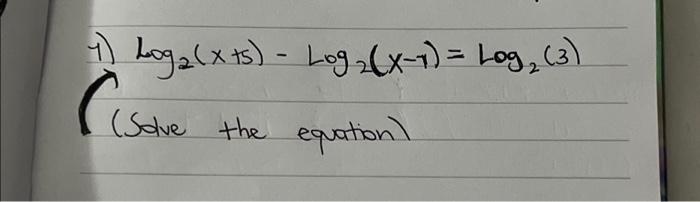 1) Log₂(x+5) - Log₂(x-1) = Log₂(3)
(Solve the equation)